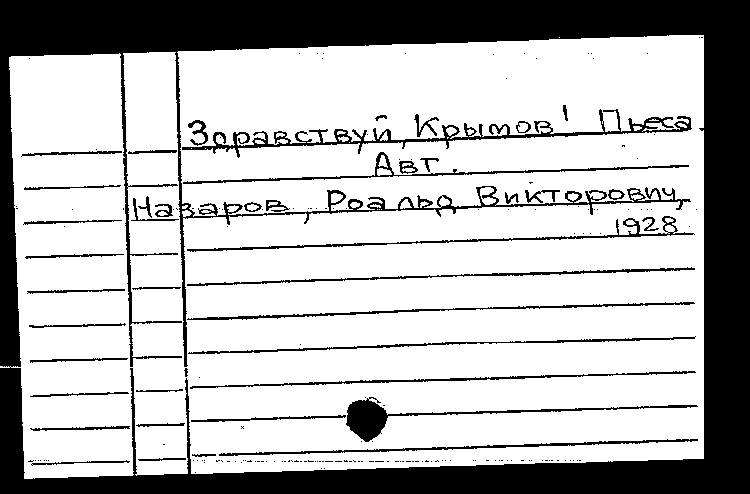 Здравствуй, Крымов! Пьеса.
Авт.
Назаров, Роальд Викторович,
1928